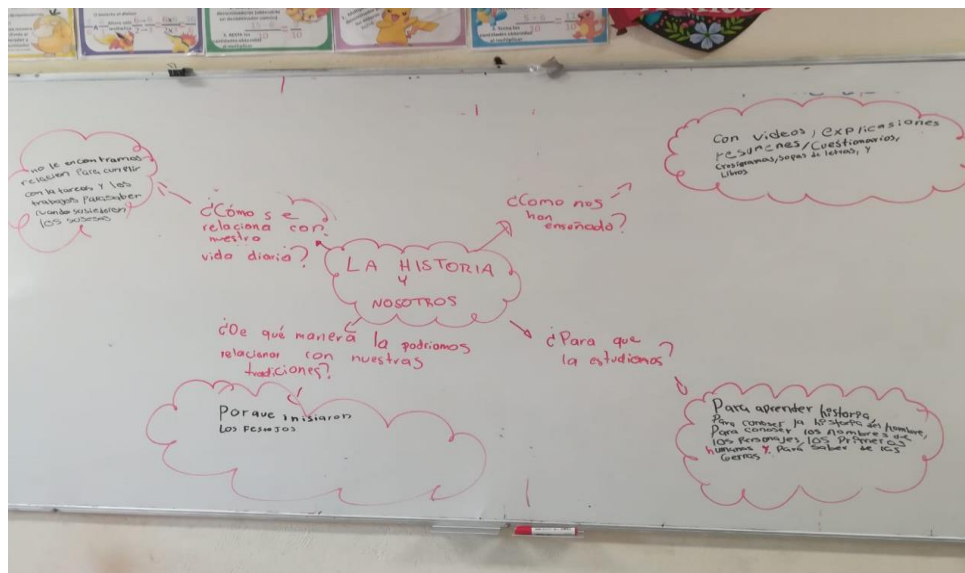 LA HISTORIA
Y
NOSOTROS
¿Cómo se
relaciona con
nuestra
vida diaria?
no le encontramos
relacion Para cumplir
con la tareas y los
trabajos Para saber
cuando
los susesos
¿Como nos
han
enseñado?
Con videos, explicasiones
resumenes, cuestionarios,
Crusigramas, sopas de letras, y
Libros
¿De qué manera la podriamos
relacionar con nuestras
tradiciones?
Porque inisiaron
Los Festejos
¿Para que
la estudiamos?
Para aprender historia,
Para conoser la historia del hombre,
Para conoser los nombres de
los Personajes, los Primeros
humanos y Para saber de las
Guerras